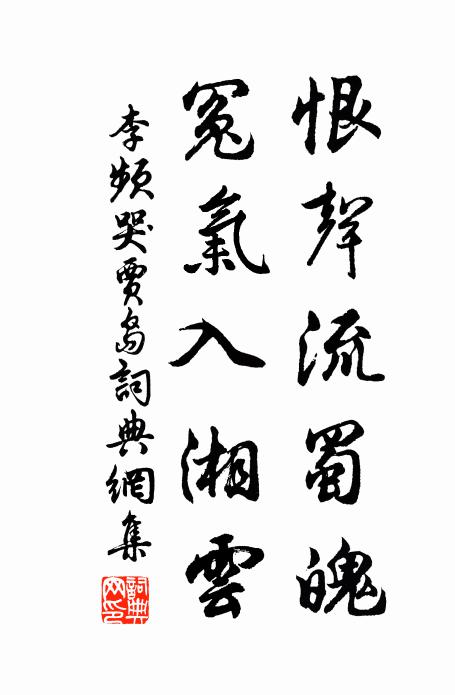 恨聲流蜀魄
冤氣入湘雲
李頻哭賈島詞典網集
詞典網印